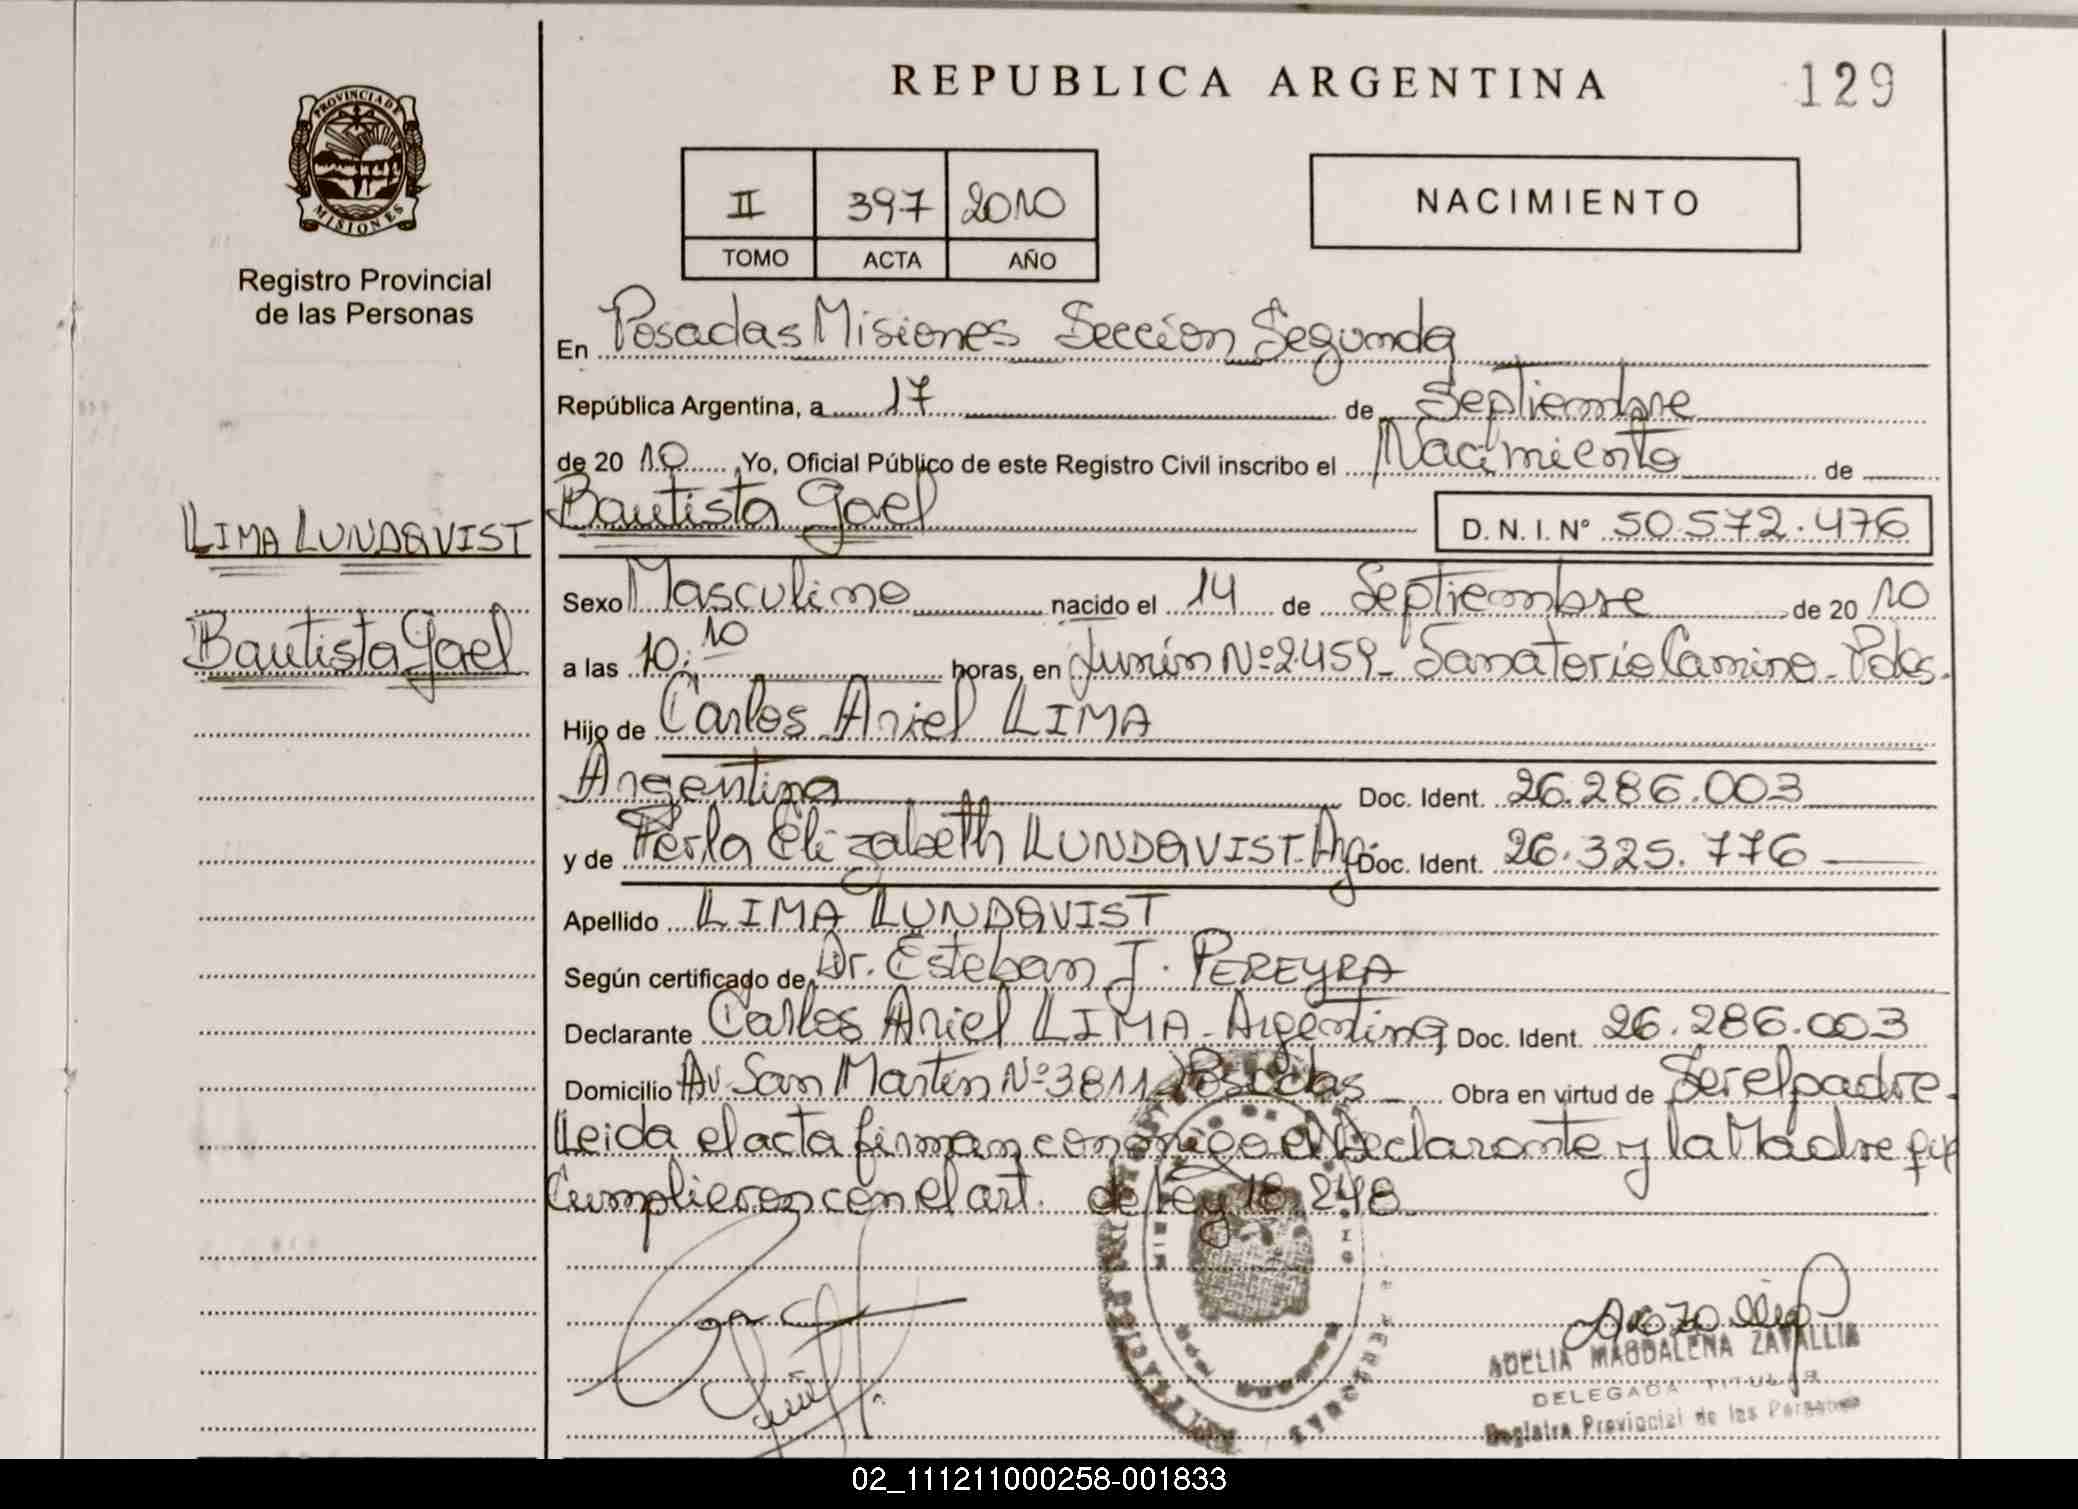 REPUBLICA ARGENTINA
129
PROVINCIA DE
MISIONES
Registro Provincial
de las Personas
II 397 2010
TOMO ACTA AÑO
NACIMIENTO
En Posadas Misiones Sección Segunda
República Argentina, a 17 de Septiembre
de 20 10 Yo, Oficial Público de este Registro Civil inscribo el Nacimiento de
Bautista Gael
D. N. I. Nº 50.572.476
LIMA LUNDQVIST
Bautista Gael
Sexo Masculino nacido el 14 de Septiembre de 20 10
a las 10:10 horas, en Junín Nº 2459 - Sanatorio Camino - Pdas.
Hijo de Carlos Ariel LIMA
Argentina Doc. Ident. 26.286.003
y de Perla Elizabeth LUNDQVIST - Arg. Doc. Ident. 26.325.776
Apellido LIMA LUNDQVIST
Según certificado de Dr. Esteban J. PEREYRA
Declarante Carlos Ariel LIMA - Argentina Doc. Ident. 26.286.003
Domicilio Av. San Martín Nº 3811 Posadas Obra en virtud de Ser el padre -
Leida el acta firman conmigo el Declarante y la Madre
Cumplieron con el art. de Ley 18.248
ADELIA MAGDALENA ZAVALLIA
DELEGADA TITULAR
Registro Provincial de las Personas
02_111211000258-001833